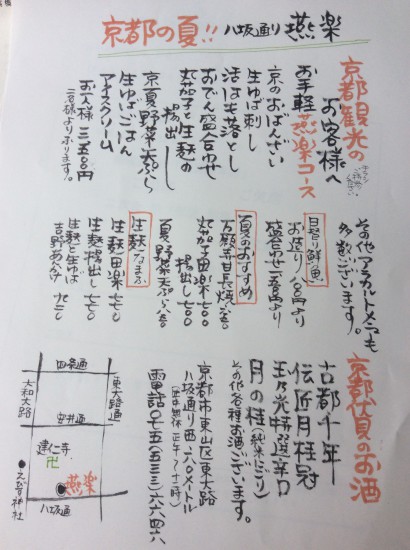 京都の夏!! 八坂通り 燕楽
京都観光の
お客様へ
お手軽 燕楽コース
京のおばんざい
生ゆば刺し
活はも落とし
おでん盛合わせ
丸茄子と生麩の
揚出し
京夏野菜天ぷら
生ゆばごはん
アイスクリーム
お一人様 三五〇〇円
二名様よりお受けします。
その他アラカルトメニューも
多数ございます。
日替り鮮魚
お造り 八〇〇円より
盛合わせ 二五〇〇円より
夏のおすすめ
万願寺甘長焼
丸茄子田楽 七〇〇
揚出し
夏野菜天ぷら
生麩 なまふ
生麩田楽 七五〇
生麩揚出し 七五〇
生麩と生ゆば
吉野あんかけ 九五〇
京都伏見のお酒
古都千年
伝匠月桂冠
玉乃光特選辛口
月の桂(純米にごり)
その他各種お酒ございます。
京都市東山区東大路
八坂通り西入六〇メートル
電話〇七五(五三三)六六四六
四条通
大和大路
東大路通
安井通
建仁寺
卍
燕楽
えびす神社
八坂通